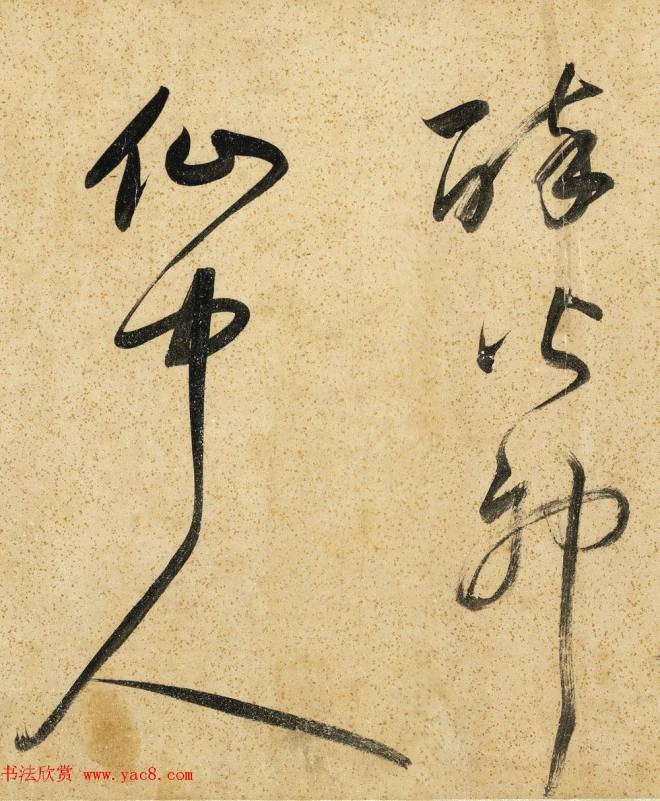 醉以神
仙中人
书法欣赏 www.yac8.com